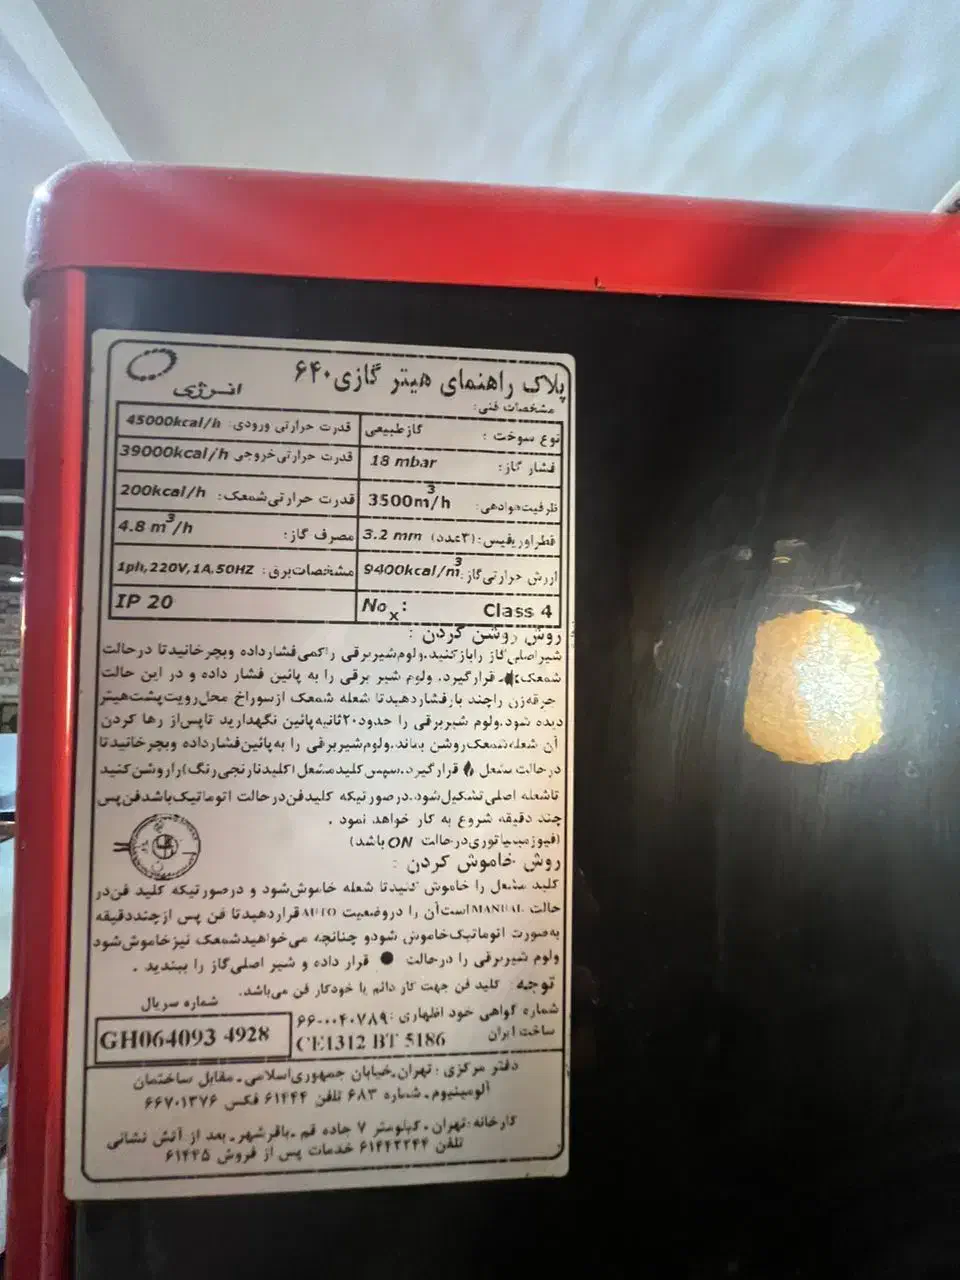 پلاک راهنمای هیتر گازی ۶۴۰
انرژی
مشخصات فنی:
نوع سوخت : گازطبیعی
قدرت حرارتی ورودی: 45000kcal/h
فشار گاز: 18 mbar
قدرت حرارتی خروجی 39000kcal/h
ظرفیت هوادهی: 3500m³/h
قدرت حرارتی شمعک: 200kcal/h
قطر اوریفیس: (۳عدد) 3.2 mm
مصرف گاز: 4.8 m³/h
ارزش حرارتی گاز: 9400kcal/m³
مشخصات برق: 1ph,220V,1A,50HZ
Noₓ: Class 4
IP 20
روش روشن کردن :
شیر اصلی گاز را باز کنید. ولوم شیر برقی را کمی فشار داده و بچرخانید تا در حالت
شمعک قرار گیرد. ولوم شیر برقی را به پائین فشار داده و در این حالت
جرقه زن را چند بار فشار دهید تا شعله شمعک از سوراخ محل رویت پشت هیتر
دیده شود. ولوم شیر برقی را حدود ۲۰ ثانیه پائین نگهدارید تا پس از رها کردن
آن شعله شمعک روشن بماند. ولوم شیر برقی را به پائین فشار داده وبچرخانید تا
در حالت مشعل قرار گیرد. سپس کلید مشعل (کلید نارنجی رنگ) را روشن کنید
تا شعله اصلی تشکیل شود. در صورتیکه کلید فن در حالت اتوماتیک باشد فن پس
چند دقیقه شروع به کار خواهد نمود .
(فیوز مینیاتوری در حالت ON باشد)
روش خاموش کردن :
کلید مشعل را خاموش کنید تا شعله خاموش شود و در صورتیکه کلید فن در
حالت MANUAL است آن را در وضعیت AUTO قرار دهید تا فن پس از چند دقیقه
به صورت اتوماتیک خاموش شود و چنانچه می خواهید شمعک نیز خاموش شود
ولوم شیر برقی را در حالت ● قرار داده و شیر اصلی گاز را ببندید .
توجه : کلید فن جهت کار دائم یا خودکار فن می باشد.
شماره گواهی خود اظهاری : ۶۶۰۰۰۴۰۷۸۹
شماره سریال
ساخت ایران CE1312 BT 5186
GH064093 4928
دفتر مرکزی : تهران ـ خیابان جمهوری اسلامی ـ مقابل ساختمان
آلومینیوم ـ شماره ۶۸۳ تلفن ۶۱۴۴۴ فکس ۶۶۷۰۱۳۷۶
کارخانه : تهران ـ کیلومتر ۷ جاده قم ـ باقر شهر ـ بعد از آتش نشانی
تلفن ۶۱۴۴۲۲۴۴ خدمات پس از فروش ۶۱۴۴۵